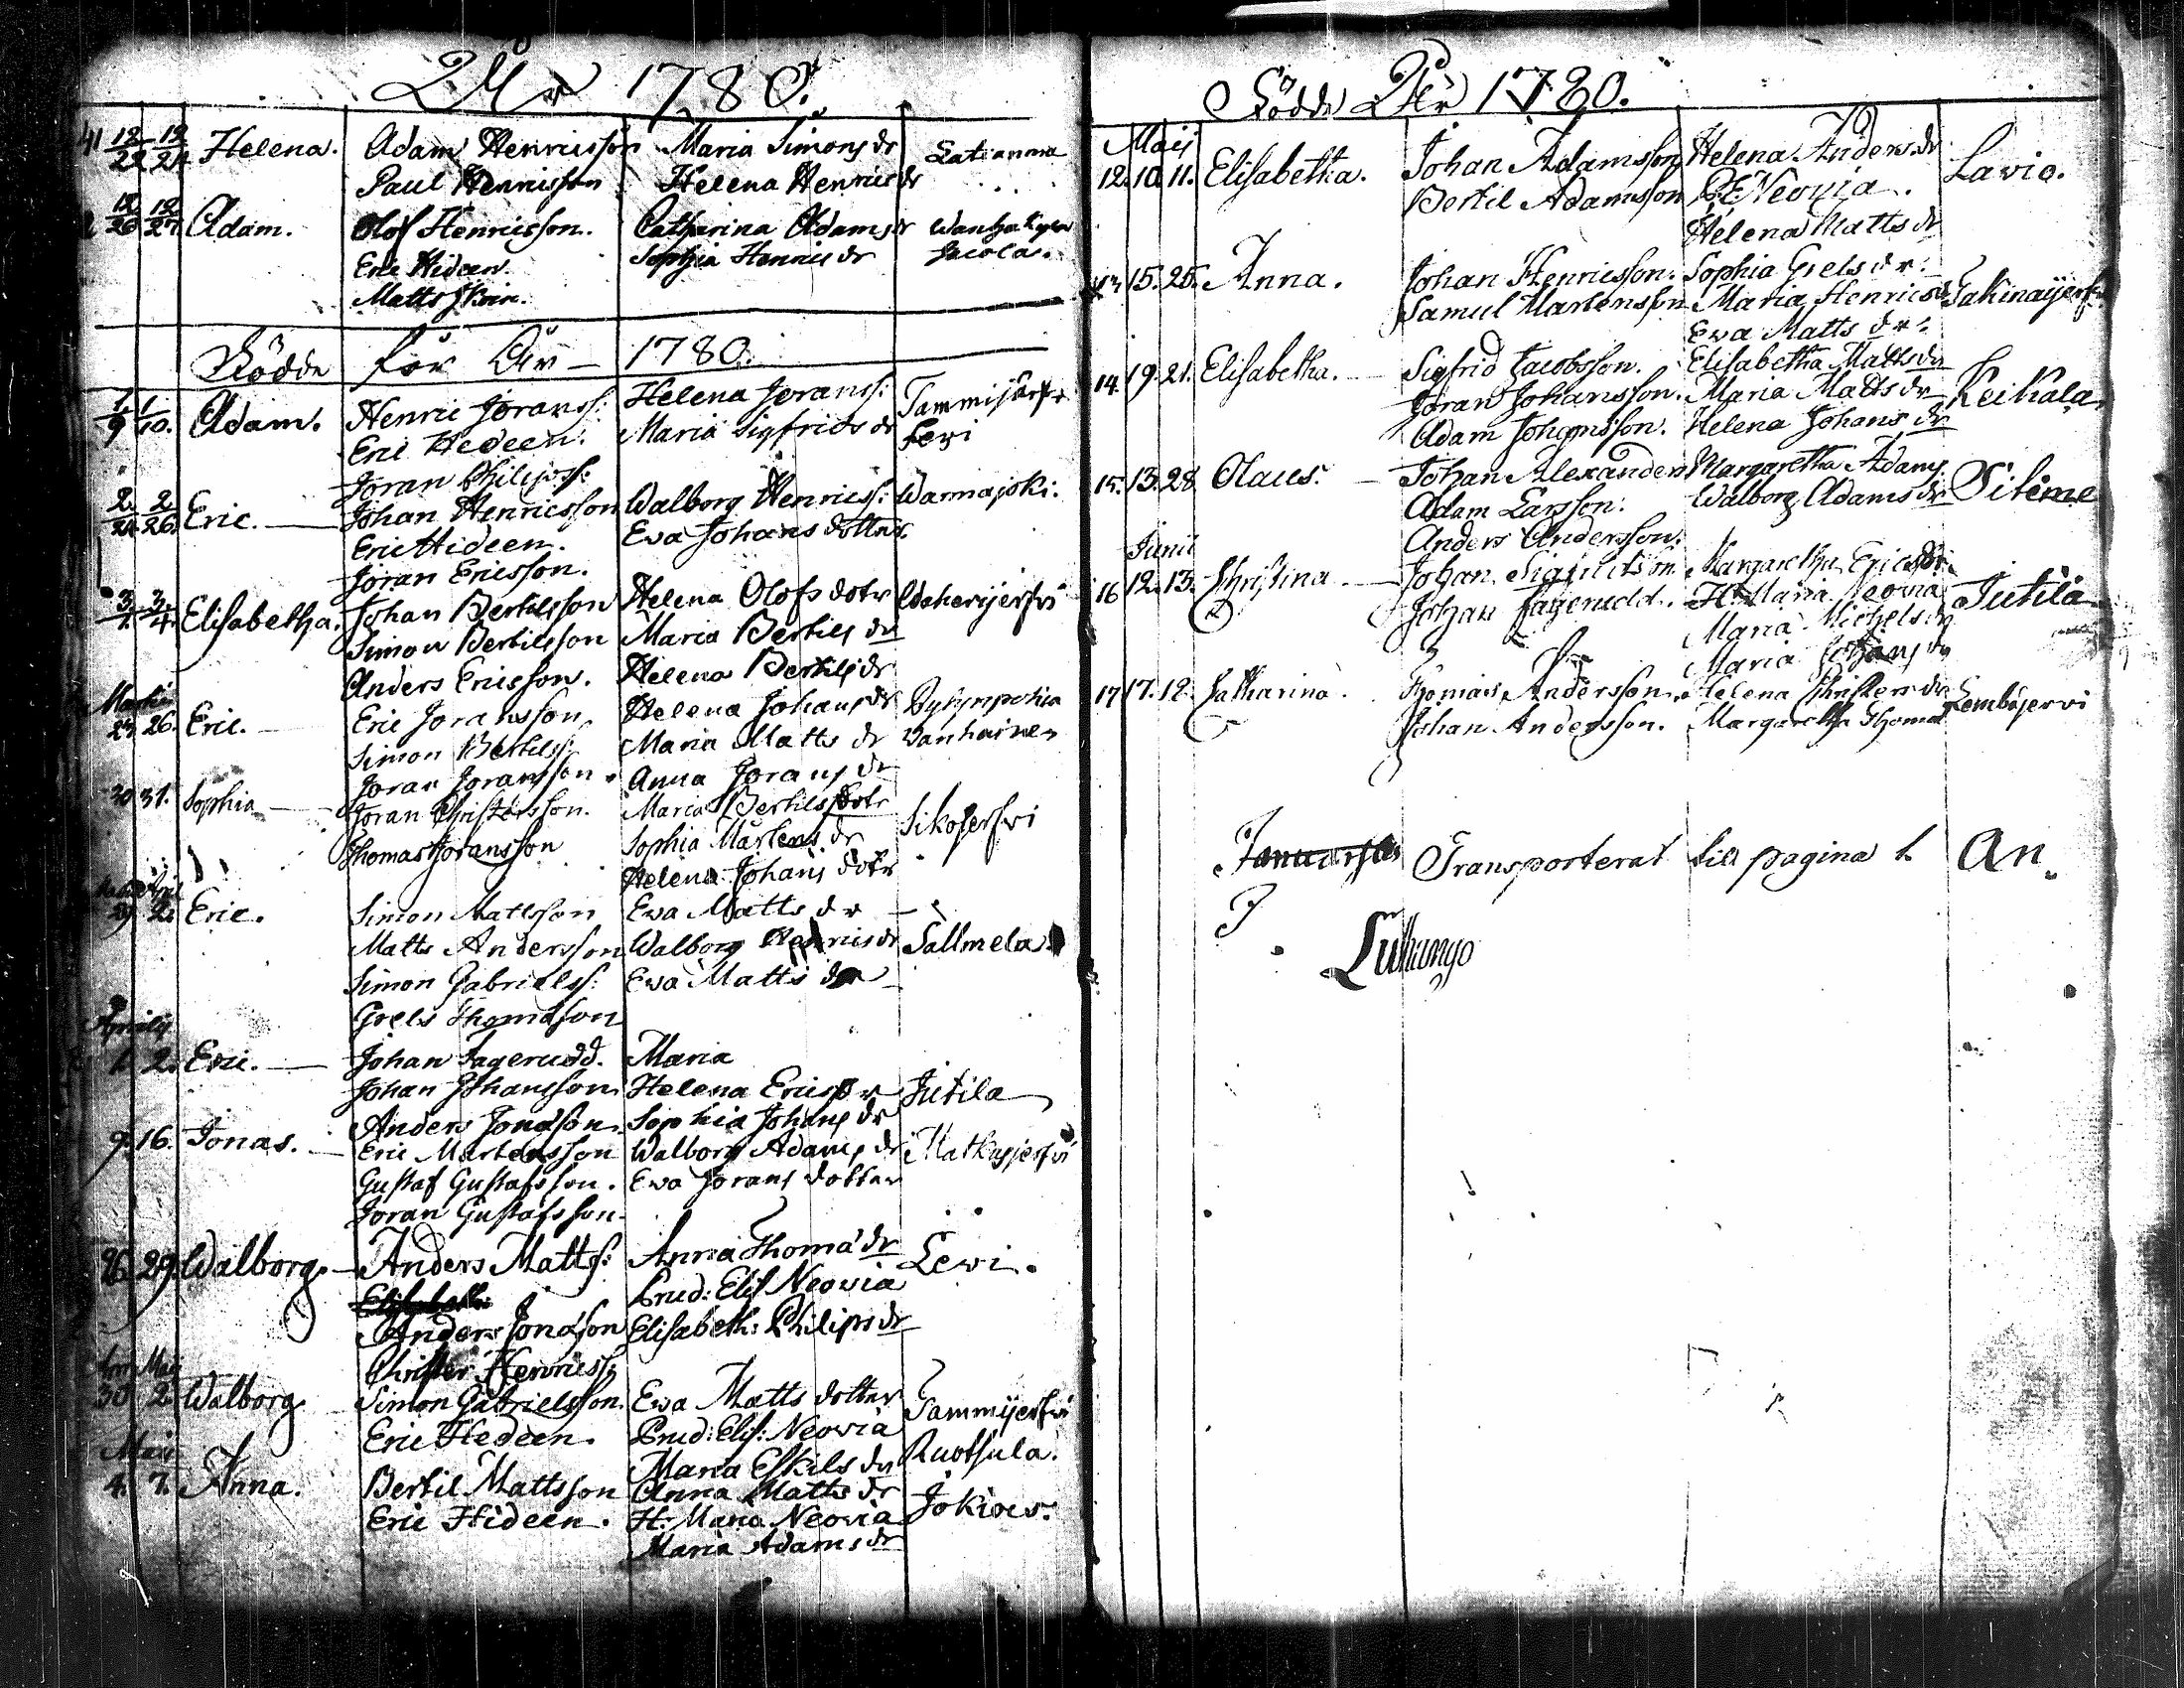 År 1780.
41 12/22 12/24 Helena. Adam Henricsson Maria Simons dr Latianma
Paul Henricsson Helena Henrics dr
12/26 12/27 Adam. Olof Henricsson. Catharina Adams dr
Eric Hideen. Sophia Henrics dr
Matts
Födde för År 1780.
1/9 1/10. Adam. Henric Joranss: Helena Joranss: Tammijärfvi
Eric Hedeen. Maria Sigfrids dr Levi
Joran Philipss:
2/24 2/26. Eric. Johan Henricsson Walborg Henricss: Warmajoki.
Eric Hideen. Eva Johans dotter.
Joran Ericsson.
3/1. 3/4. Elisabetha. Johan Bertilsson Helena Olofs dotr
Simon Bertilsson Maria Bertils dr
Anders Ericsson. Helena Bertils dr
Martii
25 26. Eric. Eric Joransson. Helena Johans dr
Simon Bertilss: Maria Matts dr
Joran Joransson. Anna Jorans dr
30 31. Sophia Joran Christersson. Maria Bertils dotr
Thomas Joransson Sophia Martens dr
Helena Johans dotr
April
29 2. Eric. Simon Mattsson Eva Matts dr
Matts Andersson Walborg Henrics dr Sallmela
Simon Gabrielss: Eva Matts dr
Grels Thomasson
Aprilis
1. 2. Eric. Johan Fagerudd. Maria
Johan Johansson Helena Erics dr Jutila
Anders Jonasson. Sophia Johans dr
9. 16. Jonas. Eric Martensson Walborg Adams dr Matkusjerfvi
Gustaf Gustafsson. Eva Jorans dotter
Joran Gustafsson
26. 29. Walborg. Anders Mattss: Anna Thomas dr Levi.
Prud: Elis Neovia
Anders Jonasson Elisabeth: Philips dr
Christer Henricss:
Apr Maij
30 2. Walborg Simon Gabrielsson. Eva Matts dotter Tammijerfvi
Eric Hedeen. Prud: Elis: Neovia
Maria Eskils dr Ruotsula.
Maii
4. 7. Anna. Bertil Mattsson Anna Matts dr Jokioes.
Eric Hideen. H: Maria Neovia
Maria Adams dr
Födde År 1780.
Maij
12. 10. 11. Elisabetha. Johan Adamsson Helena Anders dr Lavio.
Bertil Adamsson P: E: Neovia.
Helena Matts dr
13 15. 25. Anna. Johan Henricsson. Sophia Grels dr.
Samuel Martensson Maria Henrics dr
Eva Matts dr.
14 19. 21. Elisabetha. Sigfrid Jacobsson. Elisabetha Matts dr
Joran Johansson. Maria Matts dr Keikala
Adam Johansson. Helena Johans dr
15. 13. 28. Olaus. Johan Alexanders Margaretha Adams
Adam Larsson. Walborg Adams dr
Anders Andersson.
Junii
16 12. 13. Christina Johan Margaretha Erics dr
Johan Fagerudd. H: Maria Neovia Jutila
Maria Michels dr
Maria Johans dr
17 17. 18. Catharina. Thomas Andersson. Helena Christers dr Lembojervi
Johan Andersson. Margaretha Thomas
Transporterat till pagina 1. An.